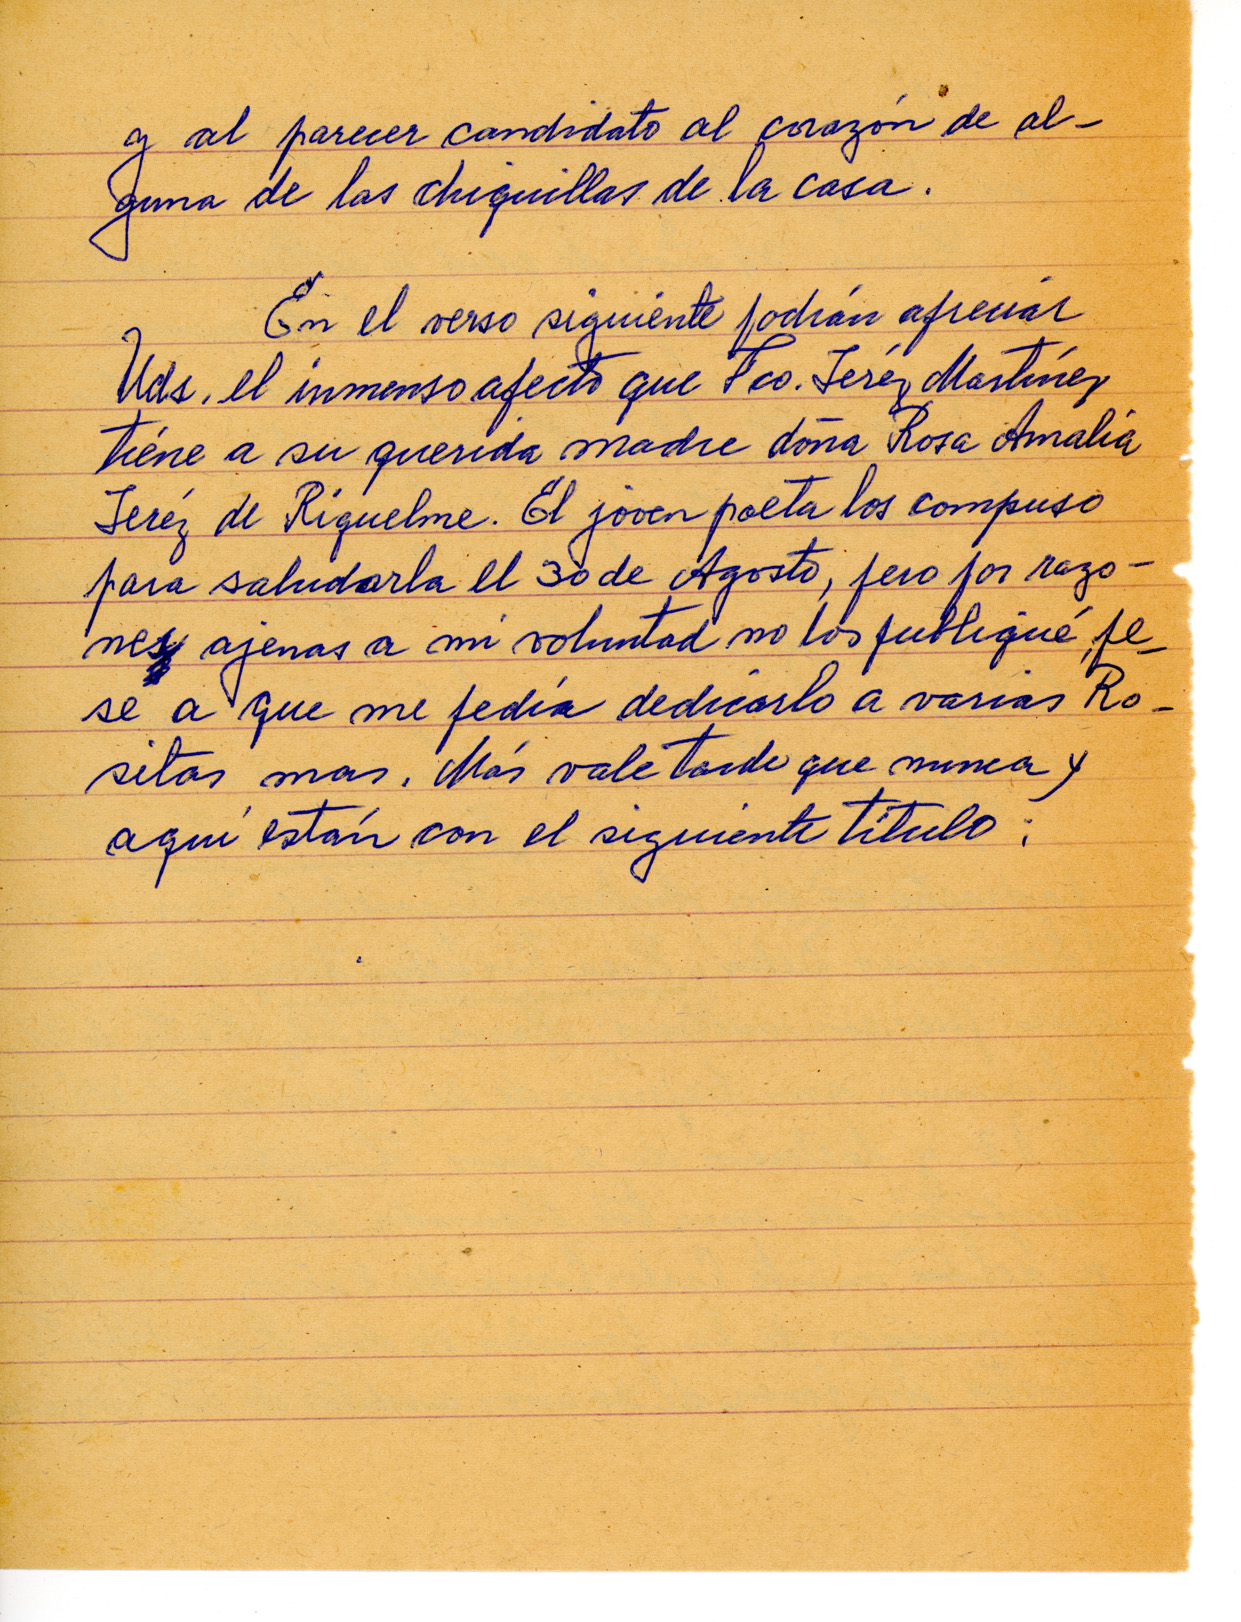 y al parecer candidato al corazón de al-
guna de las chiquillas de la casa.
En el verso siguiente podrán apreciar
Uds. el inmenso afecto que Fco. Jeréz Martínez
tiene a su querida madre doña Rosa Amalia
Jeréz de Riquelme. El joven poeta los compuso
para saludarla el 30 de Agosto, pero por razo-
nes ajenas a mi voluntad no los publiqué, pe-
se a que me pedía dedicarlo a varias Ro-
sitas mas. Más vale tarde que nunca y
aquí están con el siguiente título: